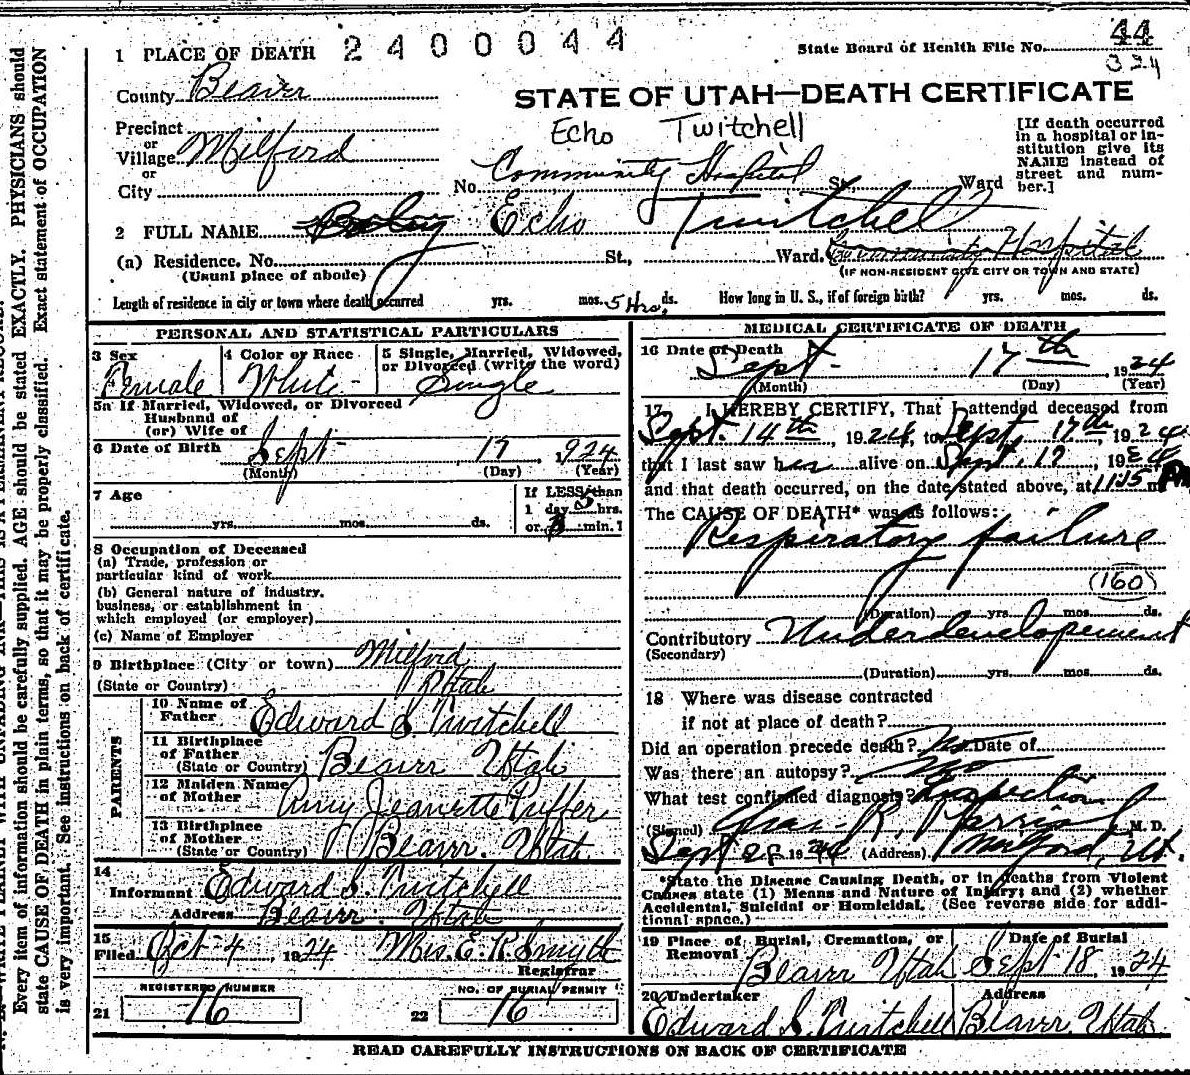 1 PLACE OF DEATH 2400044
State Board of Health File No. 44
324
County Beaver
STATE OF UTAH—DEATH CERTIFICATE
Precinct
or
Village Milford
or
City
Echo Twitchell
[If death occurred in a hospital or institution give its NAME instead of street and number.]
No. Community Hospital St. Ward
2 FULL NAME Echo Twitchell
(a) Residence. No. St., Ward. Community Hospital
(Usual place of abode) (IF NON-RESIDENT GIVE CITY OR TOWN AND STATE)
Length of residence in city or town where death occurred yrs. mos. 5 Hrs. ds. How long in U. S., if of foreign birth? yrs. mos. ds.
PERSONAL AND STATISTICAL PARTICULARS
3 Sex Female
4 Color or Race White
5 Single, Married, Widowed, or Divorced (write the word) Single
5a If Married, Widowed, or Divorced
Husband of
(or) Wife of
6 Date of Birth Sept 17 1924
(Month) (Day) (Year)
7 Age yrs. mos. ds.
If LESS than
1 day 5 hrs.
or min. ?
8 Occupation of Deceased
(a) Trade, profession or
particular kind of work
(b) General nature of industry,
business, or establishment in
which employed (or employer)
(c) Name of Employer
9 Birthplace (City or town) Milford
(State or Country) Utah
PARENTS
10 Name of Father Edward S Twitchell
11 Birthplace of Father
(State or Country) Beaver Utah
12 Maiden Name of Mother Amy Jeanette Puffer
13 Birthplace of Mother
(State or Country) Beaver. Utah
14
Informant Edward S. Twitchell
Address Beaver. Utah
15
Filed Oct-4, 1924 Mrs. E. R. Smyth
Registrar
REGISTERED NUMBER NO. OF BURIAL PERMIT
21 16 22 16
MEDICAL CERTIFICATE OF DEATH
16 Date of Death Sept. 17th 1924
(Month) (Day) (Year)
17 I HEREBY CERTIFY, That I attended deceased from
Sept. 14th, 1924, to Sept, 17th, 1924
that I last saw her alive on Sept, 17, 1924
and that death occurred, on the date stated above, at 11:15 PM
The CAUSE OF DEATH* was as follows:
Respiratory failure
(160)
(Duration) yrs. mos. ds.
Contributory Underdevelopement
(Secondary)
(Duration) yrs. mos. ds.
18 Where was disease contracted
if not at place of death?
Did an operation precede death? No Date of
Was there an autopsy? No
What test confirmed diagnosis? Inspection
(Signed) R. M. D.
Sept 1924 (Address) Milford, Ut.
*State the Disease Causing Death, or in deaths from Violent
Causes state (1) Means and Nature of Injury; and (2) whether
Accidental, Suicidal or Homicidal. (See reverse side for addi-
tional space.)
19 Place of Burial, Cremation, or Removal Beaver Utah
Date of Burial Sept-18, 1924
20 Undertaker Edward S. Twitchell
Address Beaver, Utah
READ CAREFULLY INSTRUCTIONS ON BACK OF CERTIFICATE
Every item of information should be carefully supplied. AGE should be stated EXACTLY. PHYSICIANS should
state CAUSE OF DEATH in plain terms, so that it may be properly classified. Exact statement of OCCUPATION
is very important. See instructions on back of certificate.